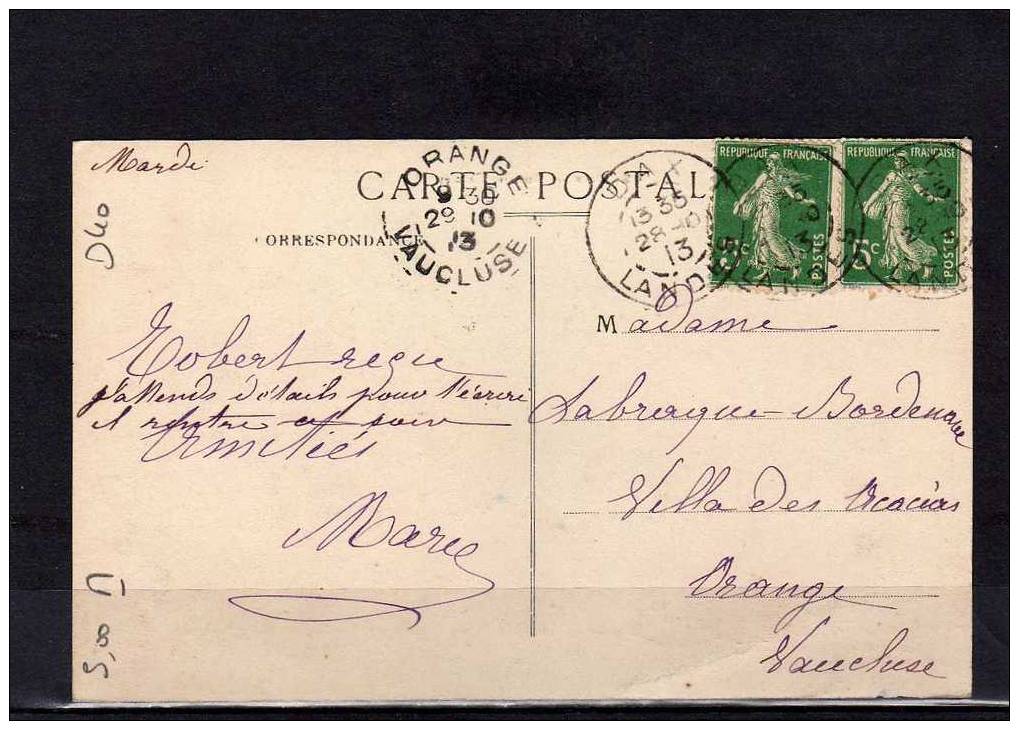 Mardi
CARTE POSTALE
CORRESPONDANCE
ORANGE
9 30
29 10
13
VAUCLUSE
DAX
13 35
28 -10
13
LANDES
REPUBLIQUE FRANÇAISE
5c
POSTES
REPUBLIQUE FRANÇAISE
5c
POSTES
Robert reçu
j'attends détails pour t'écrire
il rentre ce soir
Amitiés
Marie
Madame
Labraque-Bordenave
Villa des Acacias
Orange
Vaucluse
D40
5,00